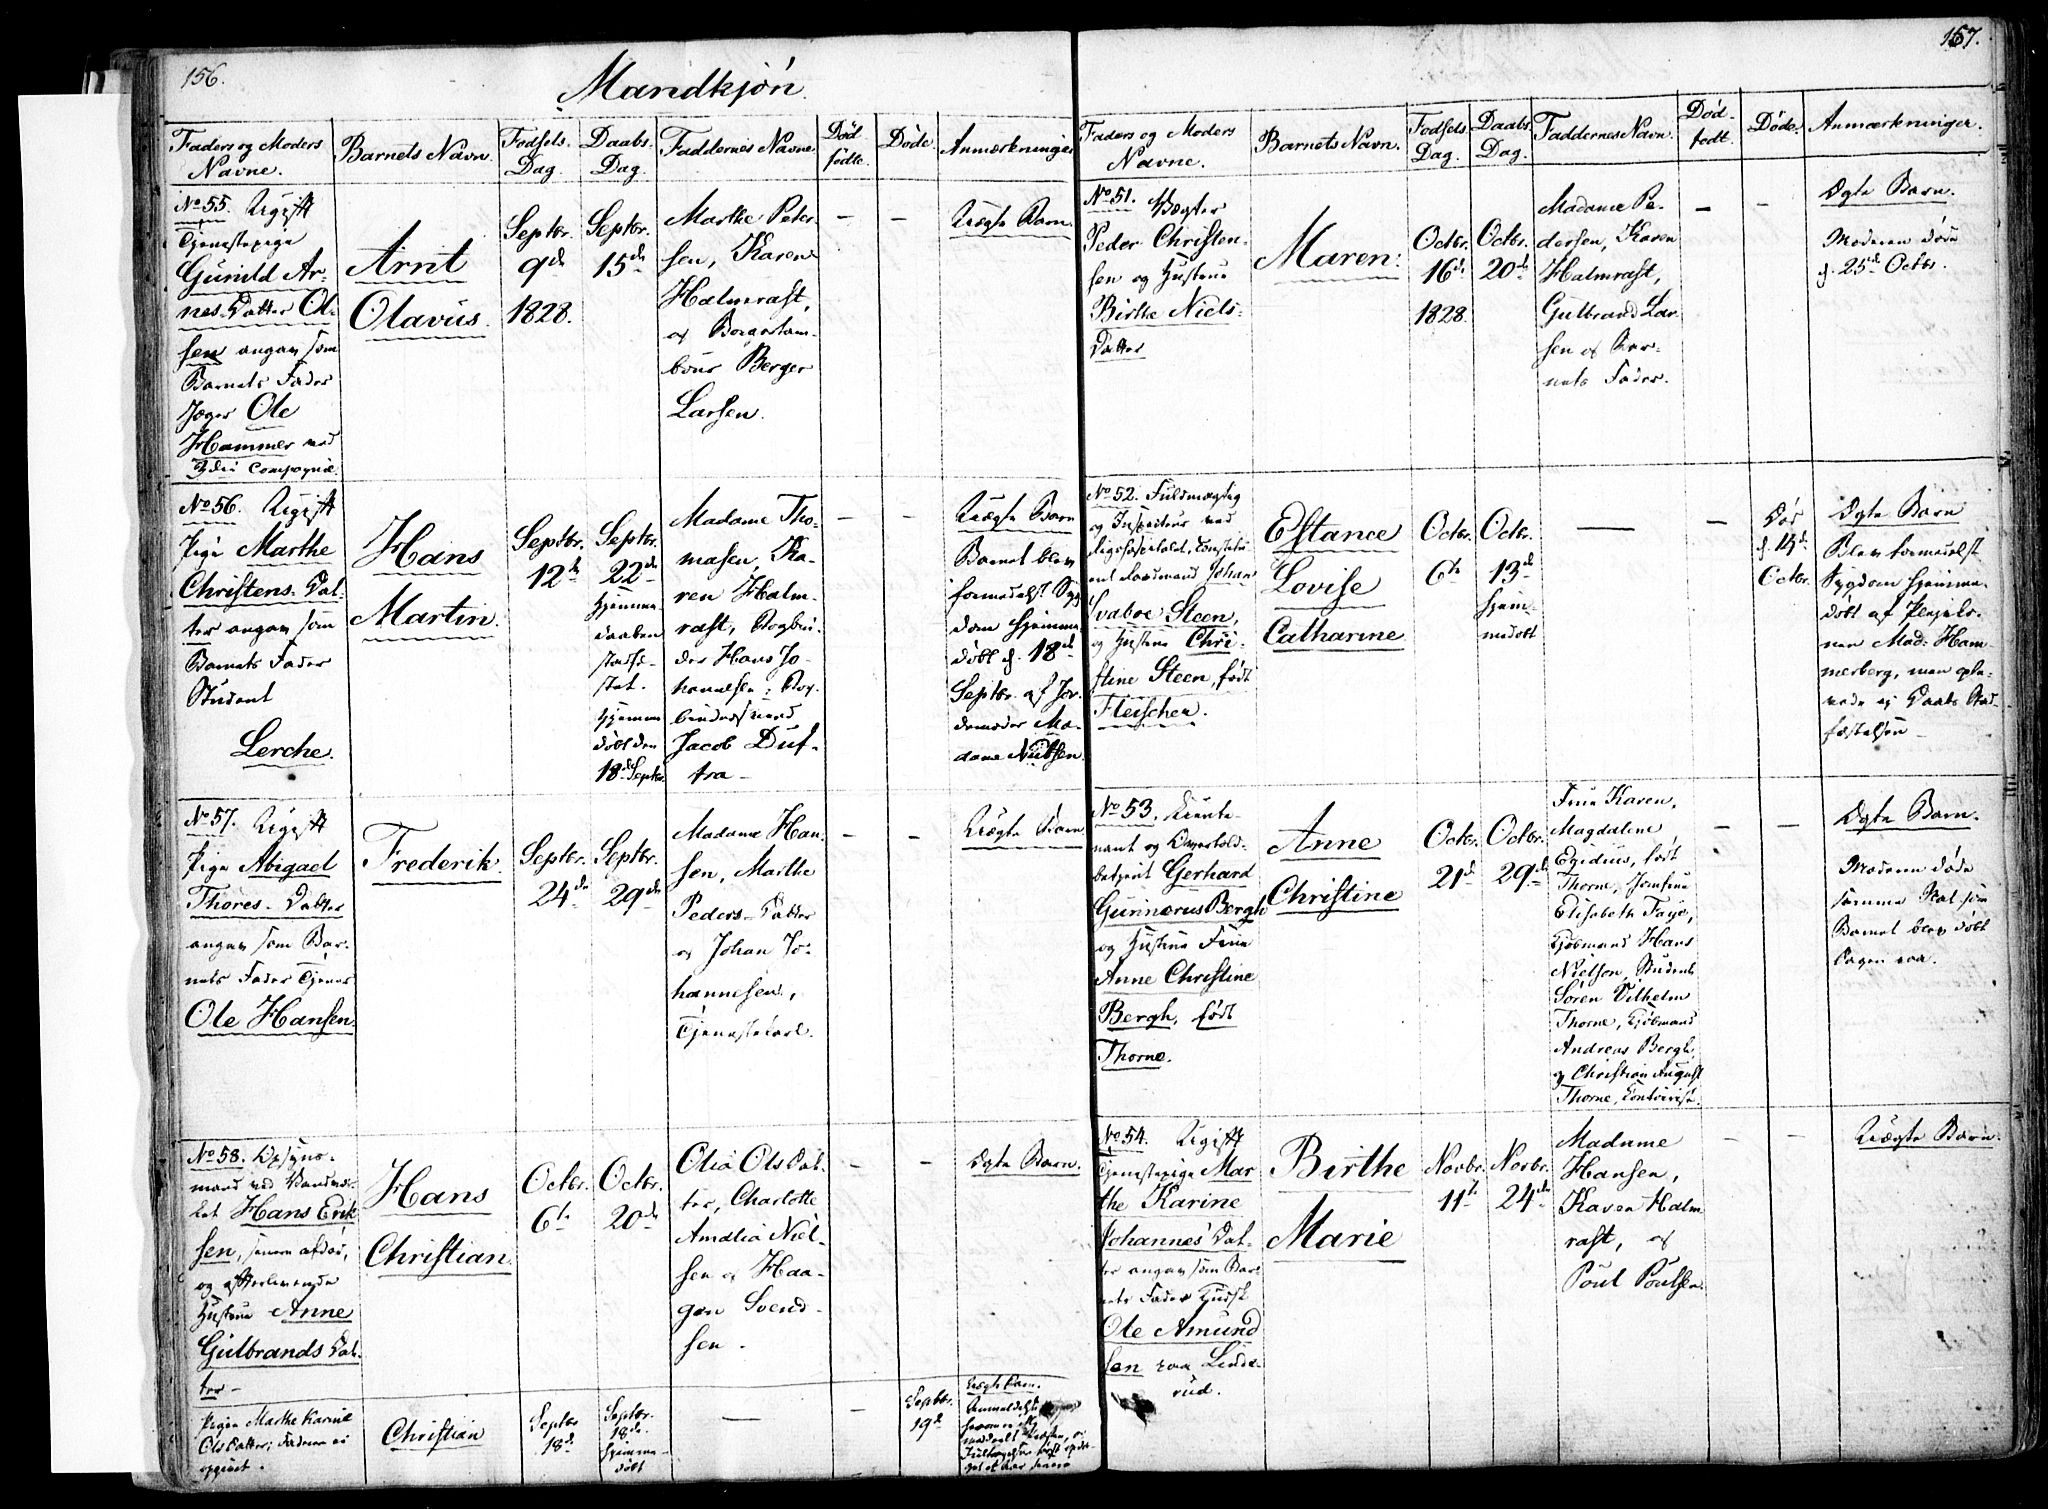 156.
Mandkjøn.
Faders og Moders
Navne.
Barnets Navn.
Fødsels
Dag.
Daabs
Dag.
Faddernes Navne.
Død
fødte.
Døde.
Anmærkninger
No 55. Ugift
Tjenestepige
Gunild Ar-
nes-Datter Ol-
sen angav som
Barnets Fader
Jæger Ole
Hammer ved
Compagnie.
Arnt
Olavus.
Septbr.
9de
1828.
Septbr.
15de
Marthe Peter-
sen, Karen
Halmrast,
og Borgertam-
bour Berger
Larsen.
—
—
Uægte Barn.
No 56. Ugift
Pige Marthe
Christens-Dat-
ter angav som
Barnets Fader
Student
Lerche.
Hans
Martin.
Septbr.
12te
Septbr.
22de
Hjemme-
daaben
stadfæ-
stet.
Hjemme
døbt den
18de Septbr.
Madame Tho-
masen, Ka-
ren Halm-
rast, Bogbin-
der Hans Jo-
hannesen, Bog-
bindersvend
Jacob Duf-
tra —
—
—
Uægte Barn
Barnet blev
formedelst Syg
dom hjemme-
døbt d. 18de
Septbr. af Jor-
demoder Ma-
dame Nutsen.
No 57. Ugift
Pige Abigael
Thores-Datter
angav som Bar-
nets Fader Tjener
Ole Hansen.
Frederik.
Septbr.
24de
Septbr.
29de
Madame Han-
sen, Marthe
Peders-Datter
og Johan Jo-
hannesen,
Tjenestekarl.
—
—
Uægte Barn.
No 58. Opsyns-
mand ved
Hans Erik
sen, senere afdød,
og efterlevende
Hustrue Anne
Gulbrands Dat-
ter —
Hans
Christian.
Octbr.
6te
Octbr.
20de
Olia Ols Dat-
ter, Charlotte
Amalia Niel-
sen og Haa-
gen Svend-
sen.
—
—
Ægte Barn.
Pigen Marthe Karine
Ols Datter; Faderen ei
opgivet.
Christian
Septbr
18de
Septbr.
18de
hjemme-
døbt
—
—
Septbr.
19de
Uægte Barn.
157.
Faders og Moders
Navne.
Barnets Navn.
Fødsels
Dag.
Daabs
Dag.
Faddernes Navn.
Død-
født.
Døde.
Anmærkninger.
No 51. Vægter
Peder Christen-
sen og Hustrue
Birthe Niels-
Datter
Maren.
Octbr.
16de
1828.
Octbr.
20de
Madame Pe-
dersen, Karen
Halmrast,
Gulbrand Lar-
sen og Bar-
nets Fader.
—
—
Ægte Barn.
Moderen døde
d. 25de Octbr.
No 52. Fuldmægtig
og Inspecteur ved
Johan
Svaboe Steen,
og Hustrue Chri-
stine Steen, født
Fleischer.
Estance
Lovise
Catharine
Octbr.
6te
Octbr.
13de
hjem-
medøbt
—
—
Død
d. 14de
Octbr.
Ægte Barn
Blev formedelst
Sygdom hjemme-
døbt af Pleieko-
nen Mad. Ham-
merberg, men ople-
vede ej Daabs Stad-
fæstelsen —
No 53. Lieute-
nant og Overtold-
betjent Gerhard
Gunnerus Bergh
og Hustrue Frue
Anne Christine
Bergh, født
Thorne.
Anne
Christine
Octbr.
21de
Octbr.
29de
Frue Karen,
Magdalene
Egidius, født
Thorne, Jomfrue
Elisabeth Faye,
Kjøbmand Hans
Nielson, Student
Søren Vilhelm
Thorne, Kjøbmand
Andreas Bergh,
og Christian August
Thorne, Contorist.
—
—
Ægte Barn.
Moderen døde
samme Nat som
Barnet blev døbt
Dagen paa.
No 54. Ugift
Tjenestepige Mar
the Karine
Johannes Dat-
ter angav som Bar-
nets Fader Huusm.
Ole Amund
sen paa Linde-
rud.
Birthe
Marie
Novbr.
11te
Novbr.
24de
Madame
Hansen,
Karen Halm
rast, og
Poul Poulsen.
—
—
Uægte Barn.